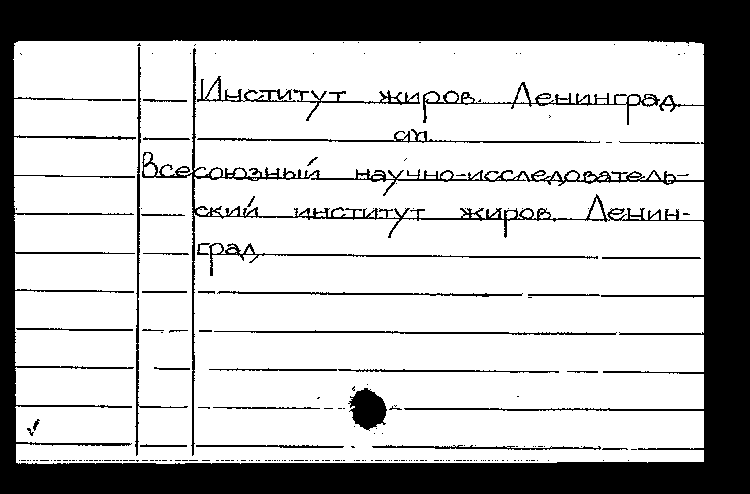 Институт жиров. Ленинград
см.
Всесоюзный научно-исследователь-
ский институт жиров. Ленин-
град.